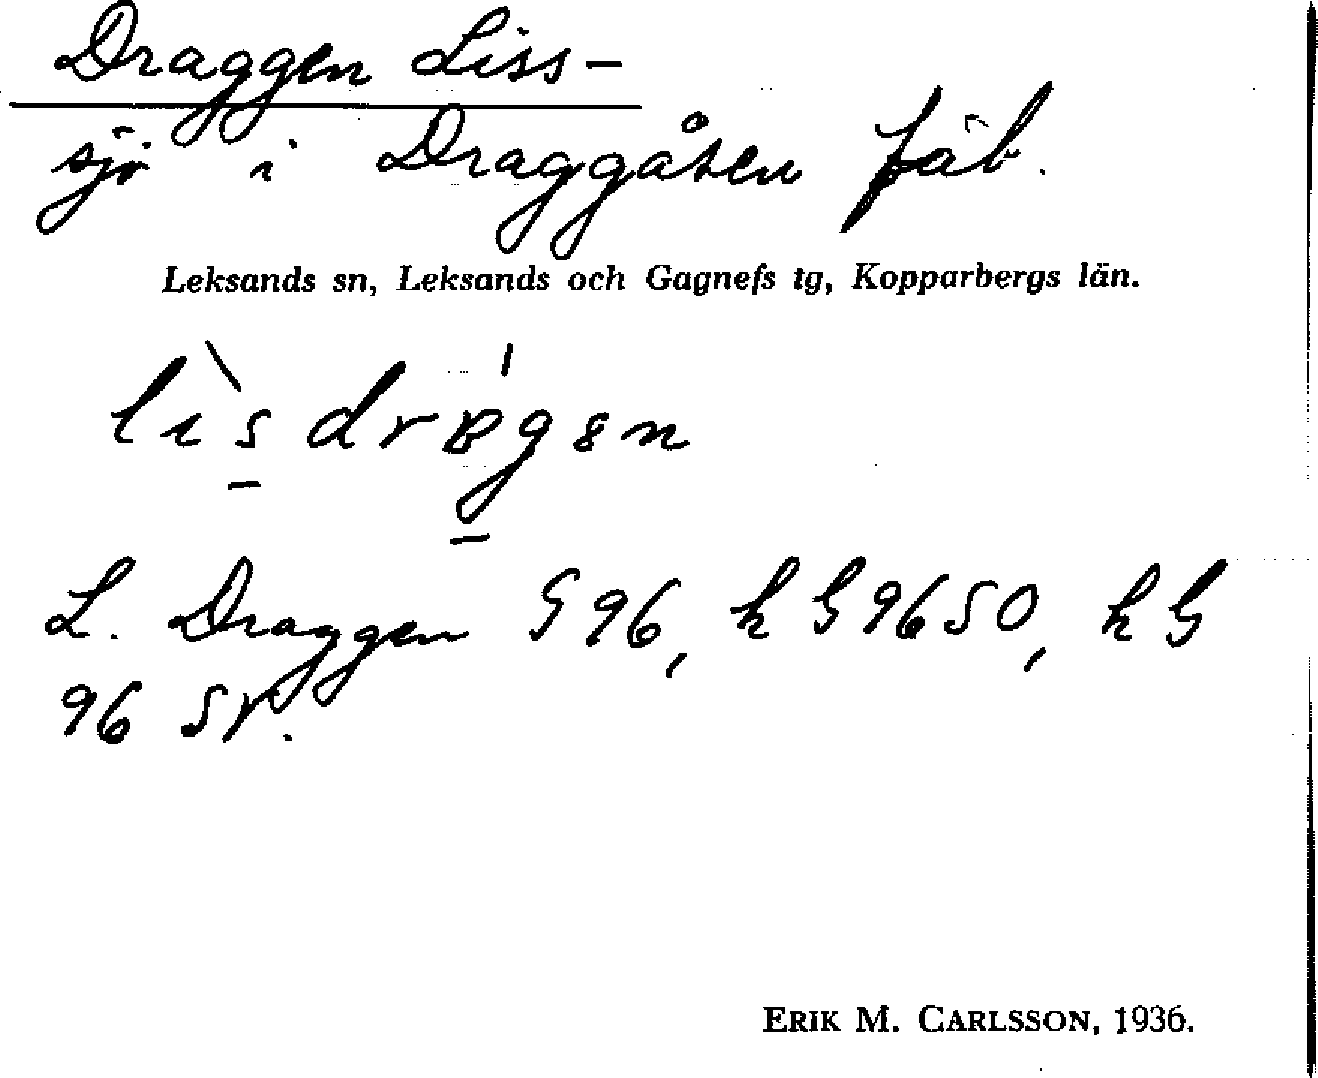 Draggen Liss-
sjö i Draggåsen fäb.
Leksands sn, Leksands och Gagnefs tg, Kopparbergs län.
L. Draggen G 96, k G 96 SO, k G
96 Sr.
ERIK M. CARLSSON, 1936.